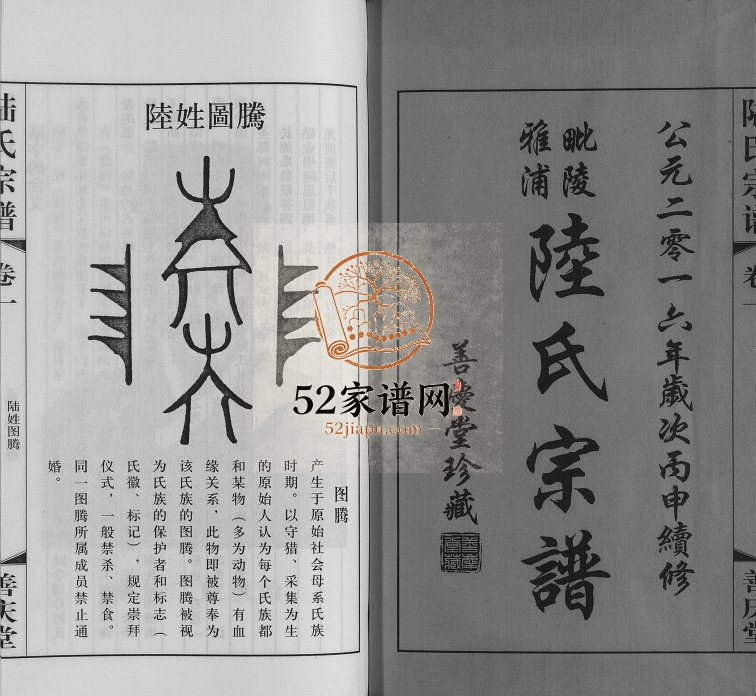 公元二零一六年歲次丙申續修
毗陵
雅浦
陸氏宗譜
善慶堂珍藏
陆氏宗谱
卷一
陆姓图腾
善庆堂
陸姓圖騰
图腾
产生于原始社会母系氏族
时期。以守猎、采集为生
的原始人认为每个氏族都
和某物（多为动物）有血
缘关系，此物即被尊奉为
该氏族的图腾。图腾被视
为氏族的保护者和标志（
氏徽、标记），规定崇拜
仪式，一般禁杀、禁食。
同一图腾所属成员禁止通
婚。
52家谱网
52jiapu.com